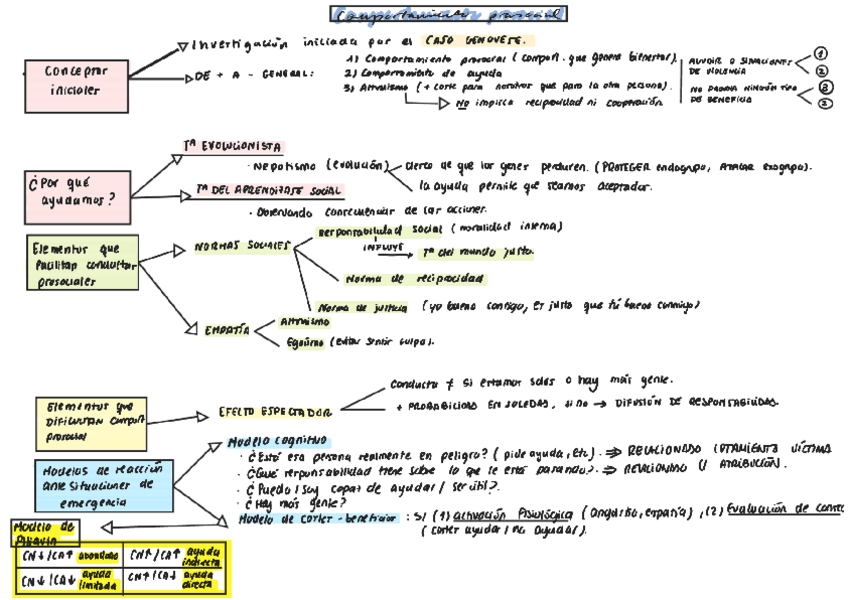 Comportamiento prosocial
Conceptos iniciales
Investigación iniciada por el CASO GENOVESE.
DE + A - GENERAL:
1) Comportamiento prosocial (comport. que genera bienestar)
2) Comportamiento de ayuda
3) Altruismo (+ coste para nosotros que para la otra persona).
No implica reciprocidad ni cooperación
ALUDIR A SITUACIONES DE VIOLENCIA
1
2
NO DEMANDA NINGÚN TIPO DE BENEFICIO
3
2
¿Por qué ayudamos?
Tª EVOLUCIONISTA
· Nepotismo (evolución)
deseo de que los genes perduren. (PROTEGER endogrupo, ATACAR exogrupo).
la ayuda permite que seamos aceptados.
Tª DEL APRENDIZAJE SOCIAL
· Observando consecuencias de las acciones.
Elementos que facilitan conductas prosociales
NORMAS SOCIALES
Responsabilidad social (moralidad interna)
INFLUYE
Tª del mundo justo.
Norma de reciprocidad
Norma de justicia (yo bueno contigo, es justo que tú bueno conmigo)
EMPATÍA
Altruismo
Egoísmo (evitar sentir culpa).
Elementos que DIFICULTAN comport. prosocial
EFECTO ESPECTADOR
Conducta ≠ si estamos solos o hay más gente.
+ PROBABILIDAD EN SOLEDAD, si no → DIFUSIÓN DE RESPONSABILIDAD.
Modelos de reacción ante situaciones de emergencia
Modelo cognitivo
· ¿Está esa persona realmente en peligro? (pide ayuda, etc). ⇒ RELACIONADO VÍCTIMA
· ¿Qué responsabilidad tiene sobre lo que le está pasando? ⇒ RELACIONADO C/ ATRIBUCIÓN.
· ¿Puedo / soy capaz de ayudar / ser útil?.
· ¿Hay más gente?
Modelo de costes-beneficios : S/ (1) activación fisiológica (angustia, empatía), (2) Evaluación de costes
(costes ayudar / no ayudar).
Modelo de
CN↓/CA↑ abandono
CN↑/CA↑ ayuda indirecta
CN↓/CA↓ ayuda limitada
CN↑/CA↓ ayuda directa